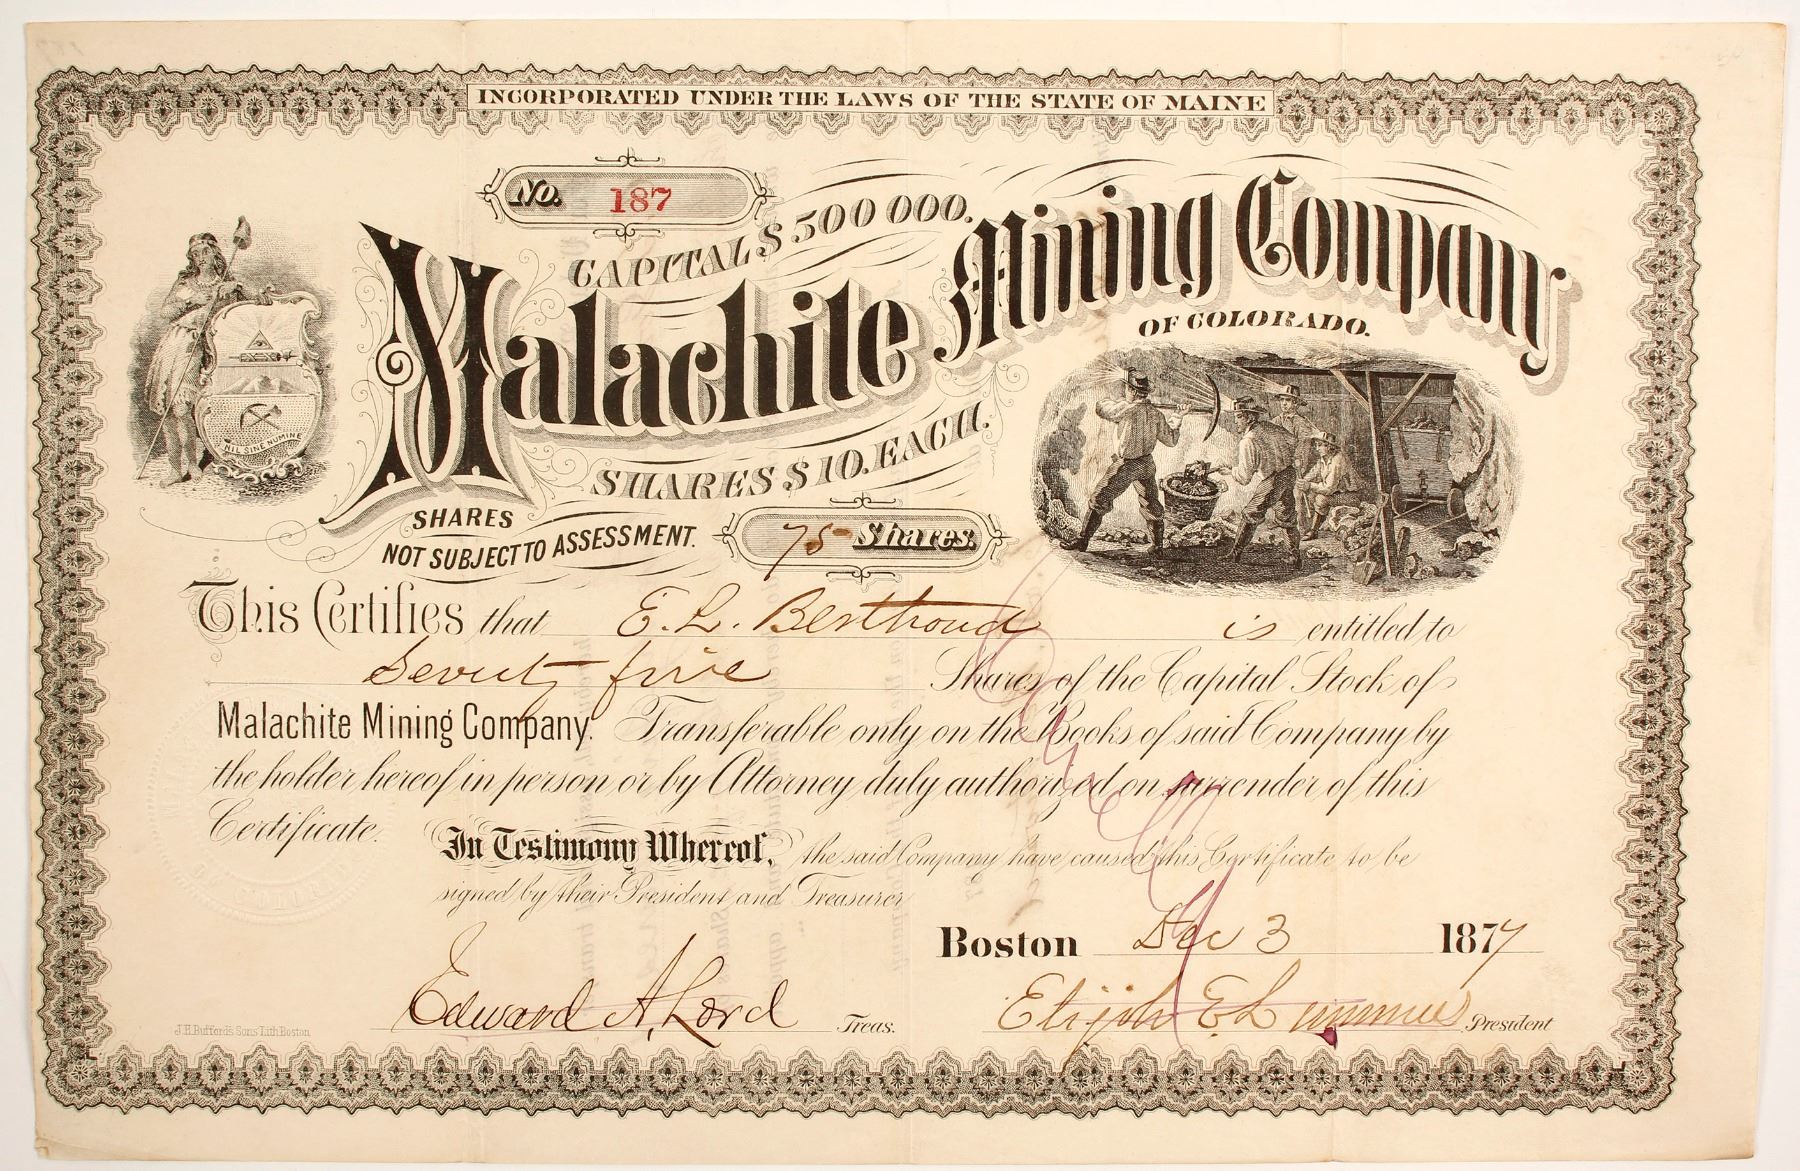 INCORPORATED UNDER THE LAWS OF THE STATE OF MAINE
No. 187
CAPITAL $ 500 000.
Malachite Mining Company
OF COLORADO.
SHARES $ 10. EACH.
NIL SINE NUMINE
SHARES
NOT SUBJECT TO ASSESSMENT.
75 Shares.
This Certifies that E. L. Berthoud is entitled to
Seventy five Shares of the Capital Stock of
Malachite Mining Company. Transferable only on the Books of said Company by
the holder hereof in person or by Attorney duly authorized on surrender of this
Certificate.
In Testimony Whereof, the said Company have caused this Certificate to be
signed by their President and Treasurer
Boston Dec 3 1877
Edward A. Lord Treas.
Elijah E. President
J.H. Bufford's Sons Lith Boston
Cancelled